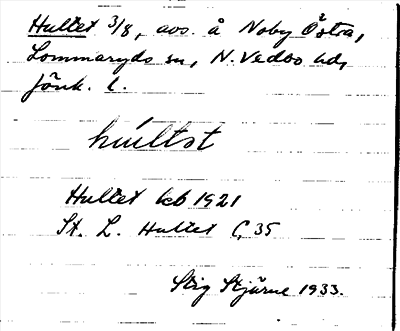 Hultet 3/8, avs. å Noby Östra,
Lommaryds sn, N. Vedbo hd,
Jönk. l.
húltət
Hultet kb 1921
St. L. Hultet C, 35
Stig Stjärne 1933.